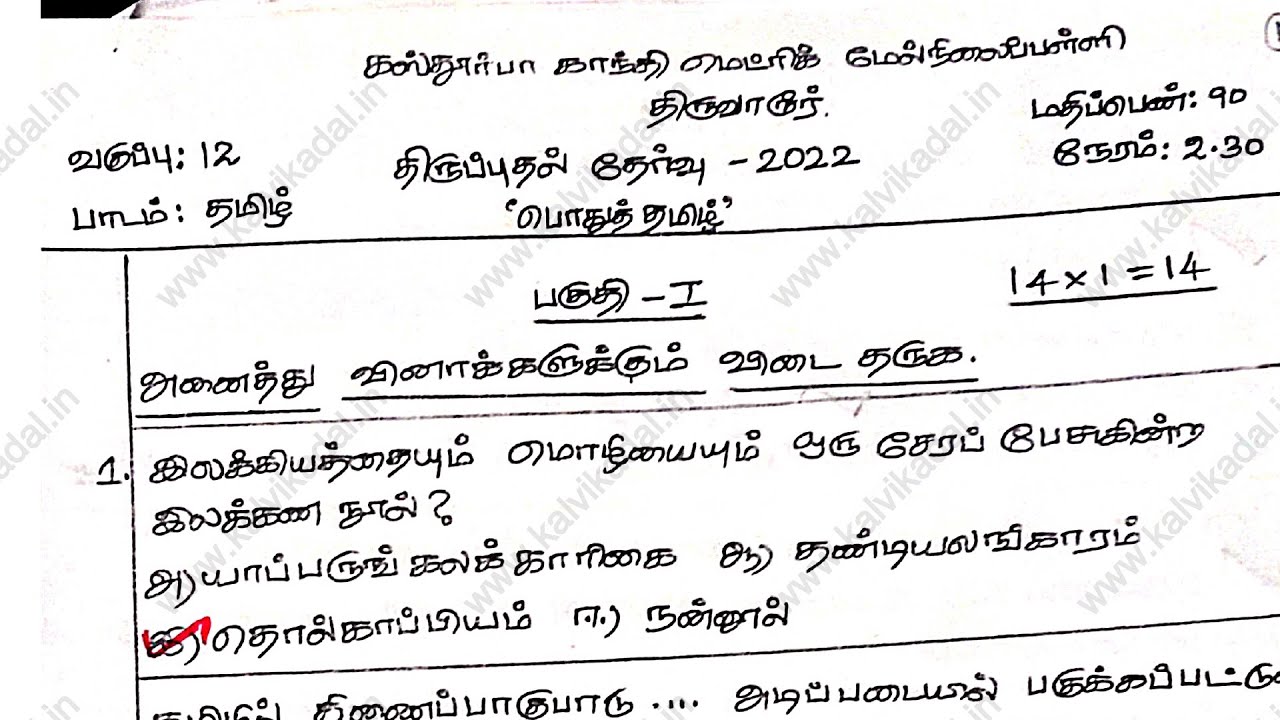 கஸ்தூர்பா காந்தி மெட்ரிக் மேல்நிலைப்பள்ளி
திருவாரூர்.
மதிப்பெண்: 90
வகுப்பு: 12
திருப்புதல் தேர்வு - 2022
நேரம்: 2.30
பாடம்: தமிழ்
'பொதுத் தமிழ்'
பகுதி - I
14 x 1 = 14
அனைத்து வினாக்களுக்கும் விடை தருக.
1. இலக்கியத்தையும் மொழியையும் ஒரு சேரப் பேசுகின்ற
இலக்கண நூல்?
அ) யாப்பருங் கலக் காரிகை ஆ) தண்டியலங்காரம்
இ) தொல்காப்பியம் ஈ.) நன்னூல்
தமிழில் திணைப்பாகுபாடு .... அடிப்படையில்
www.kalvikadal.in